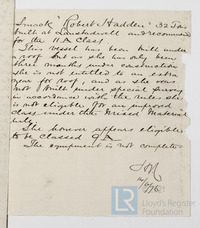 Smack "Robert Hadden" 32 Tons
built at and recommended
for the 11 A Class
This vessel has been built under
a roof but as she has only been
three months under construction
she is not entitled to an extra
year for roof, and as she was
not built under special survey
in accordance with the rules she
is not eligible for an improved
class under the Mixed Material
rule.
She however appears eligible
to be classed 9A
The equipment is not complete
Lloyd's Register
Foundation